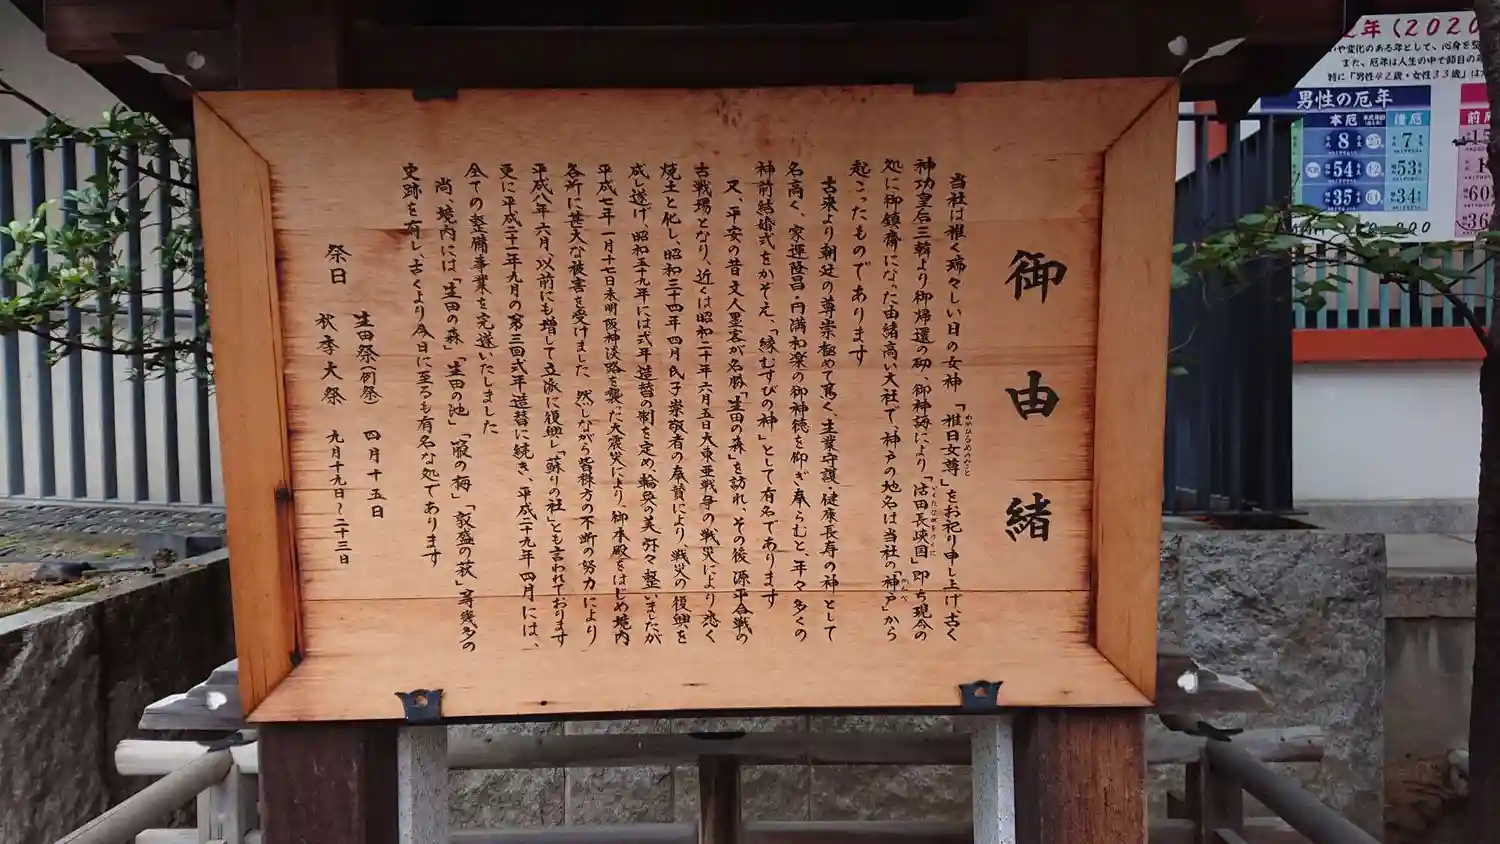 御由緒
当社は稚く瑞々しい日の女神「稚日女尊」をお祀り申し上げ古く
わかひるめのみこと
神功皇后三韓より御帰還の砌、御神誨により「活田長峡国」即ち現今の
いくたながをのくに
処に御鎮斎になった由緒高い大社で、神戸の地名は当社の「神戸」から
かんべ
起こったものであります
古来より朝廷の尊崇極めて篤く、生業守護・健康長寿の神として
名高く、家運隆昌・円満和楽の御神徳を仰ぎ奉らむと、年々多くの
神前結婚式をかぞえ、「縁むすびの神」として有名であります
又、平安の昔文人墨客が名勝「生田の森」を訪れ、その後源平合戦の
古戦場となり、近くは昭和二十年六月五日大東亜戦争の戦災により悉く
焼土と化し、昭和三十四年四月氏子崇敬者の奉賛により、戦災の復興を
成し遂げ、昭和五十九年には式年造替の制を定め、輪奐の美弥々整いましたが
平成七年一月十七日未明阪神淡路を襲った大震災により、御本殿をはじめ境内
各所に甚大な被害を受けました、然しながら皆様方の不断の努力により
平成八年六月、以前にも増して立派に復興し「蘇りの社」とも言われております
更に平成二十一年九月の第三回式年造替に続き、平成二十九年四月には、
全ての整備事業を完遂いたしました
尚、境内には「生田の森」「生田の池」「箙の梅」「敦盛の萩」等幾多の
史跡を有し、古くより今日に至るも有名な処であります
祭日 生田祭(例祭) 四月十五日
秋季大祭 九月十九日～二十三日
年(2020
や変化のある年として、心身を
また、厄年は人生の中で節目の
特に「男性42歳・女性33歳」は
男性の厄年
本厄 後厄
8 7
54 53
35 34